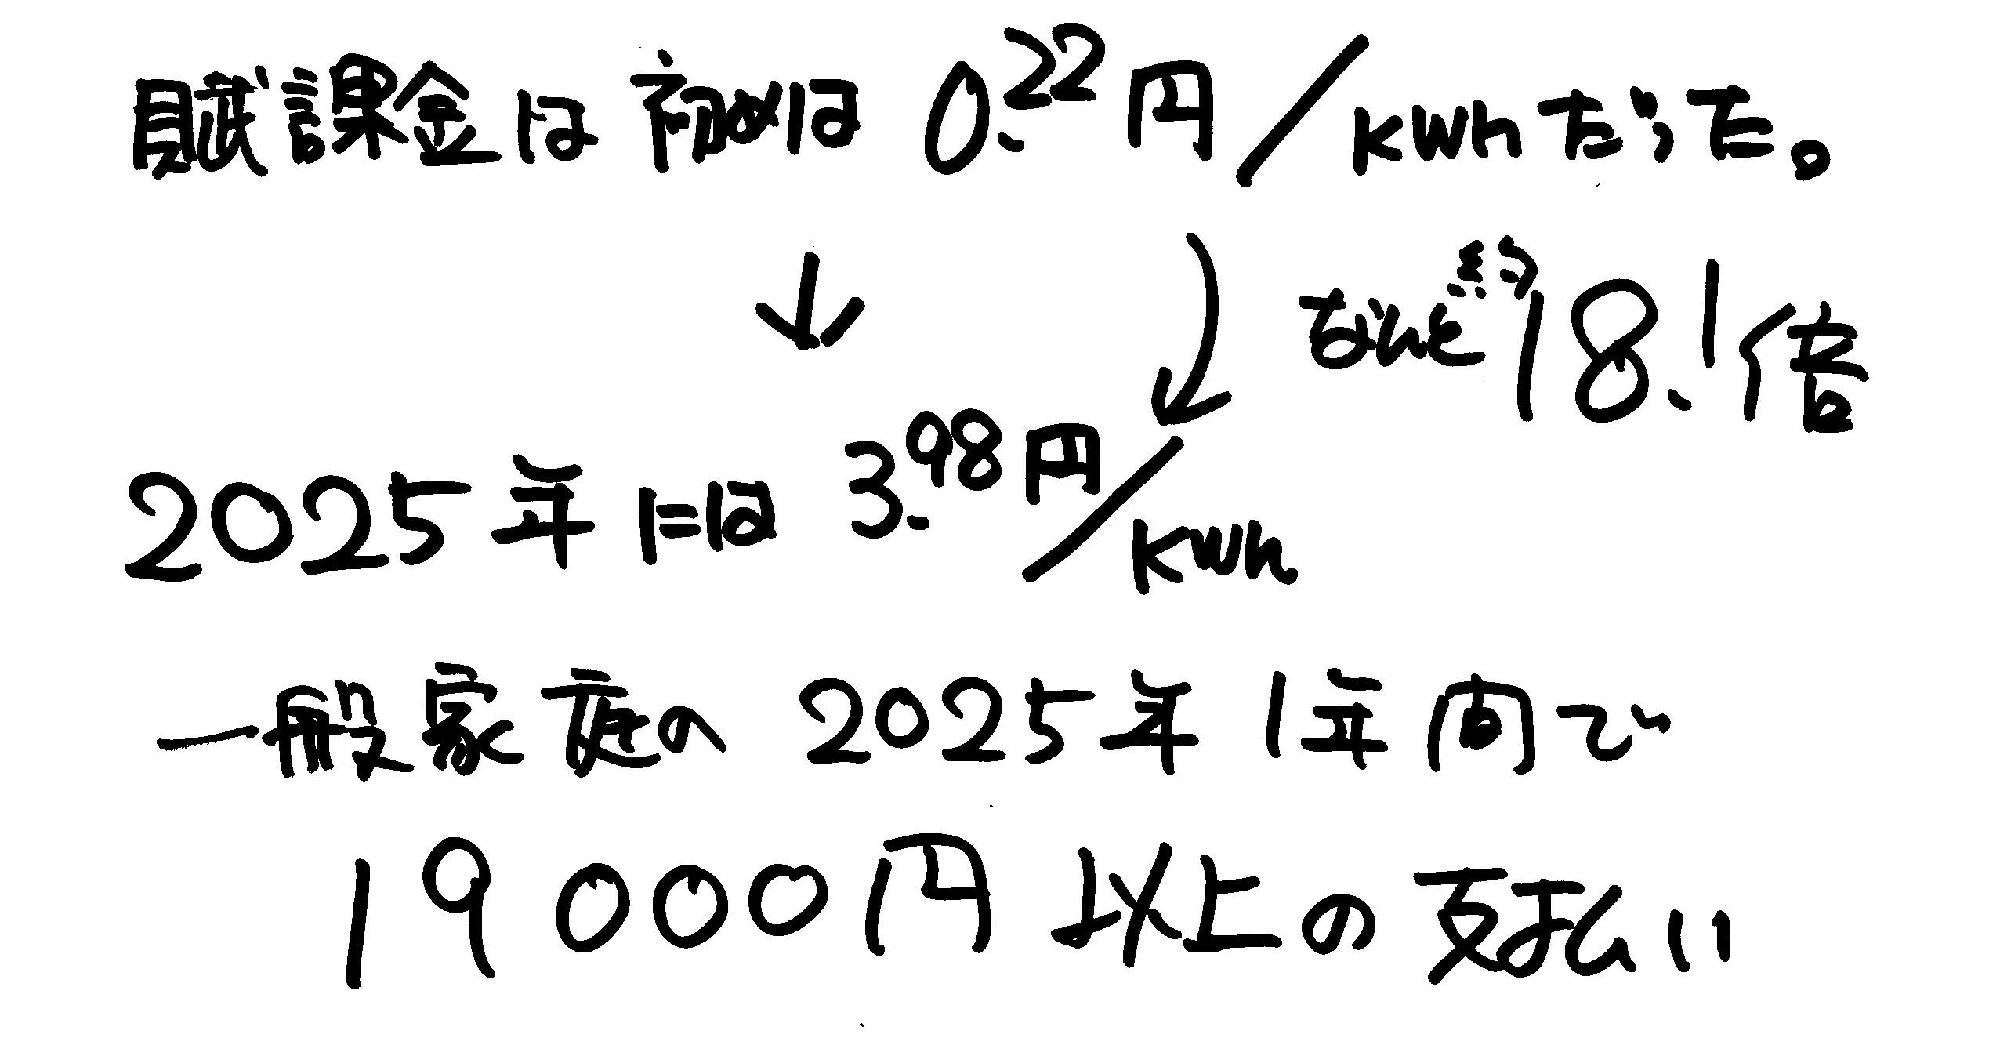 賦課金は初めは0.22円/kwhだった。
↓
なんと18.1倍
2025年には3.98円/kwh
一般家庭の2025年1年間で
19000円以上の支払い